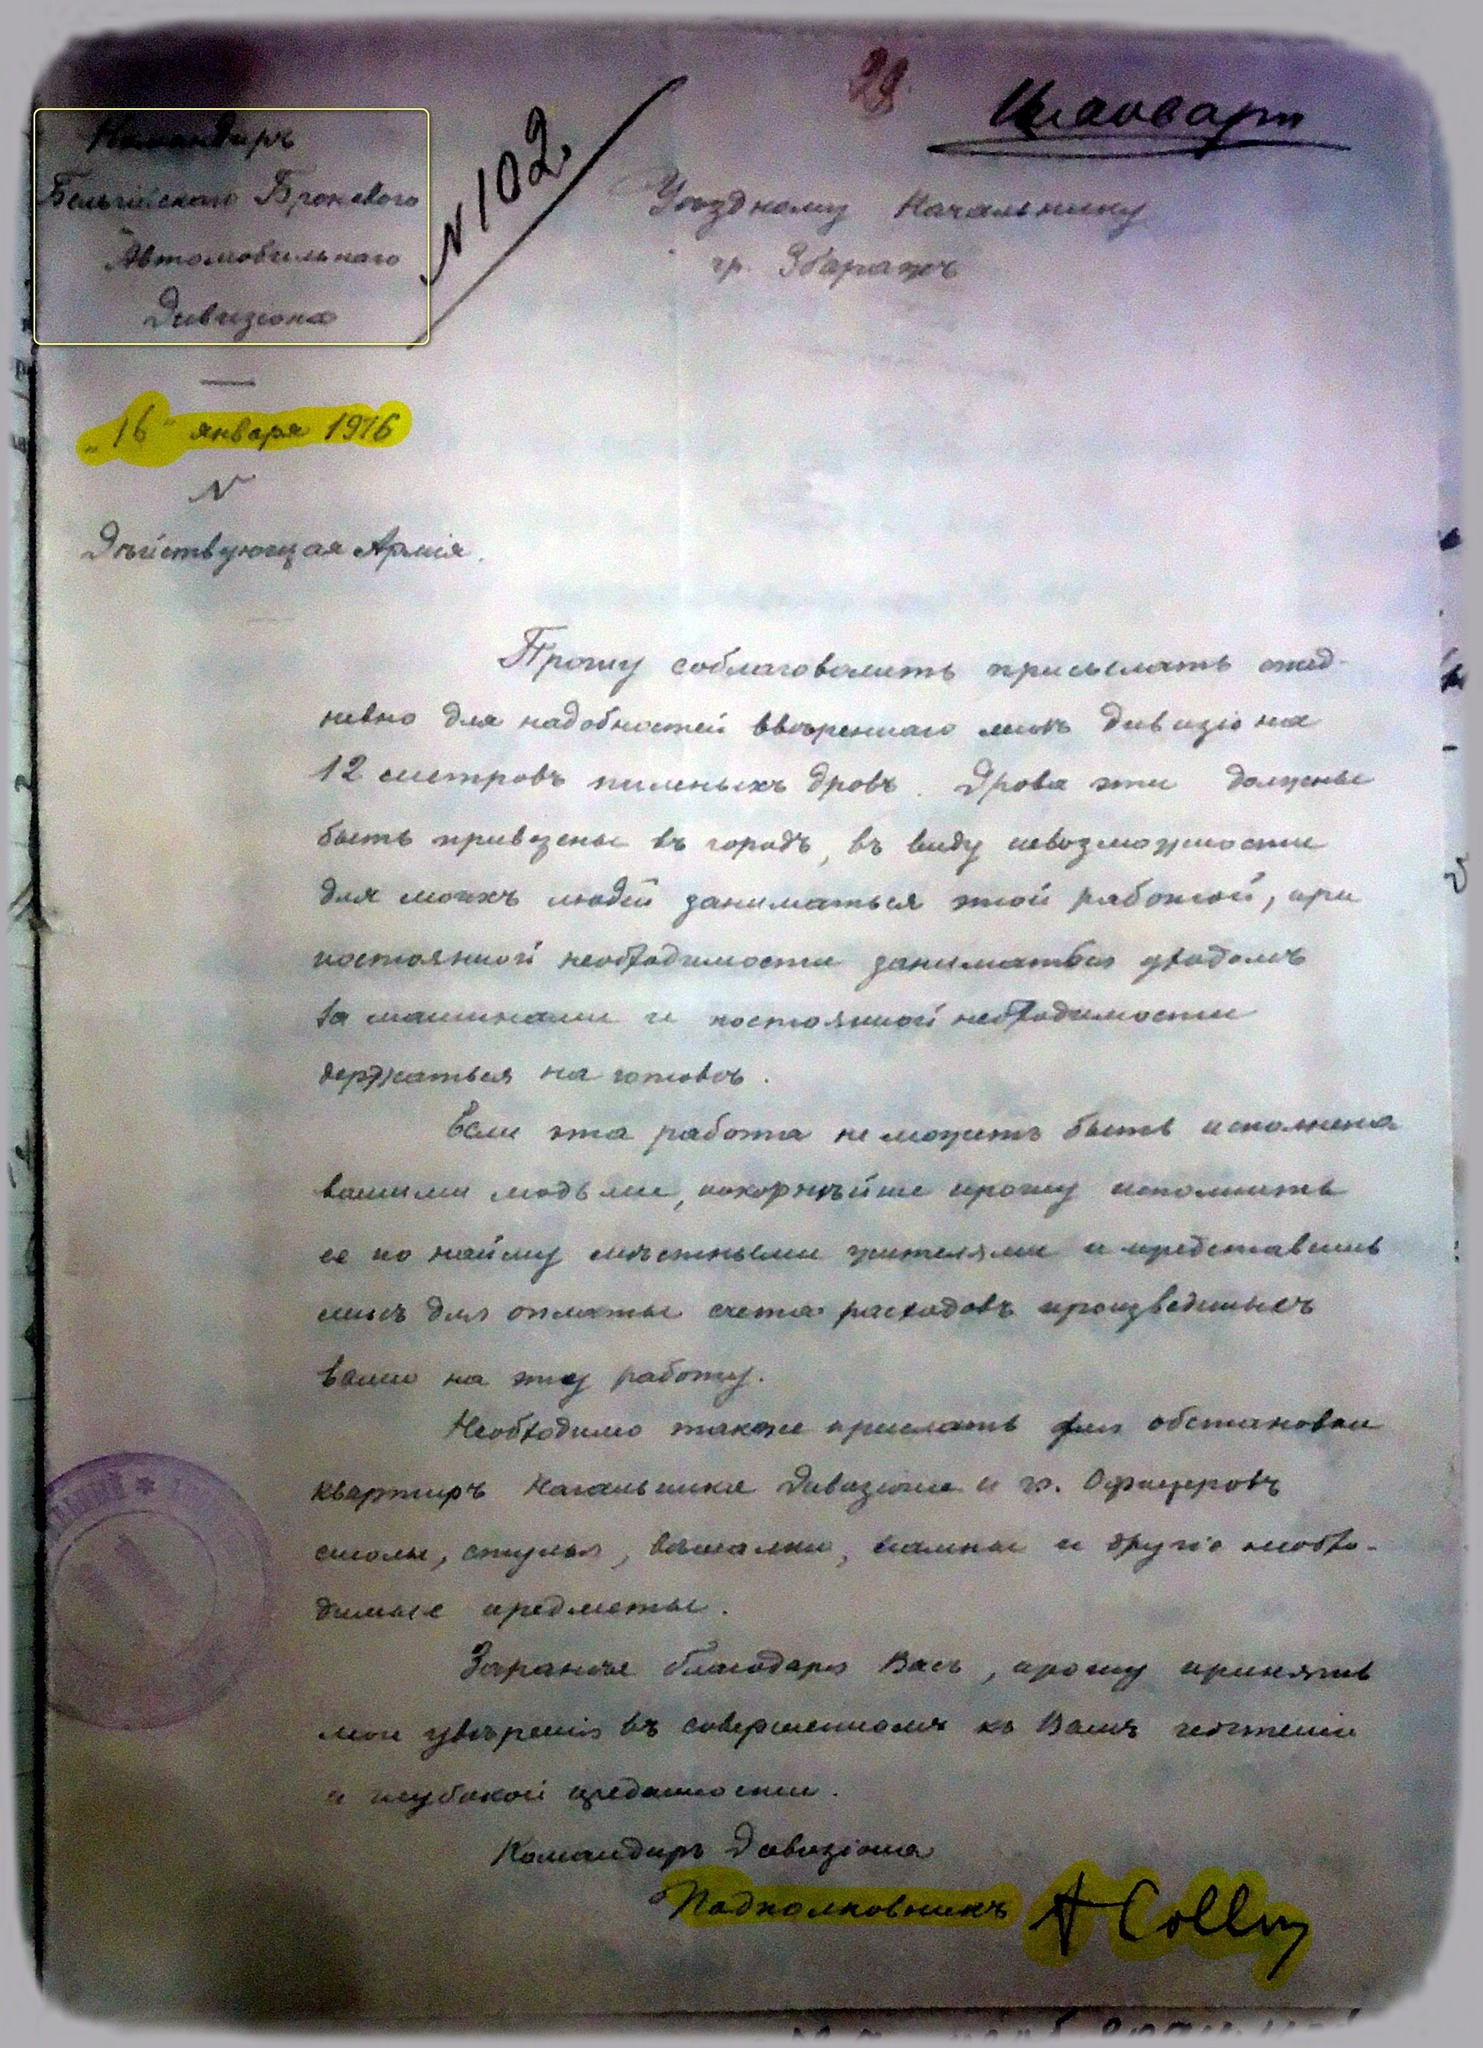 28.
Командиръ
Бельгійскаго Броневого
Автомобильнаго
Дивизіона
N 102.
Уѣздному Начальнику
гр. Збаражъ
"16" января 1916
N
Дѣйствующая Армія.
Прошу соблаговолить присылать ежед-
невно для надобностей ввѣреннаго мнѣ дивизіона
12 метровъ пиленыхъ дровъ. Дрова эти должны
быть привезены въ городъ, въ виду невозможности
для моихъ людей заниматься этой работой, при
постоянной необходимости заниматься уходомъ
за машинами и постоянной необходимости
держаться на готовѣ.
Если эта работа не можетъ быть исполнена
вашими людьми, покорнѣйше прошу исполнить
ее по найму мѣстными жителями и представить
мнѣ для оплаты счета расходовъ произведенныхъ
вами на эту работу.
Необходимо также прислать для обстановки
квартиръ Начальника Дивизіона и гг. Офицеровъ
столы, стулья, вѣшалки, лампы и другіе необхо-
димые предметы.
Заранѣе благодаря Васъ, прошу принять
мои увѣренія въ совершенномъ къ Вамъ почтеніи
и глубокой преданности.
Командиръ Дивизіона
Подполковникъ A Collon